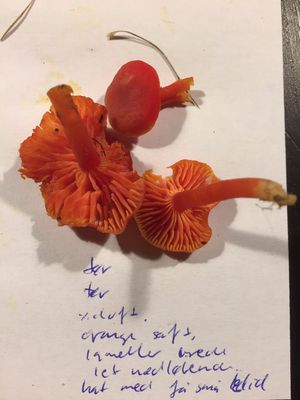 tør
tør
% duft.
orange saft,
lameller brede
let nedløbende.
hat med få små